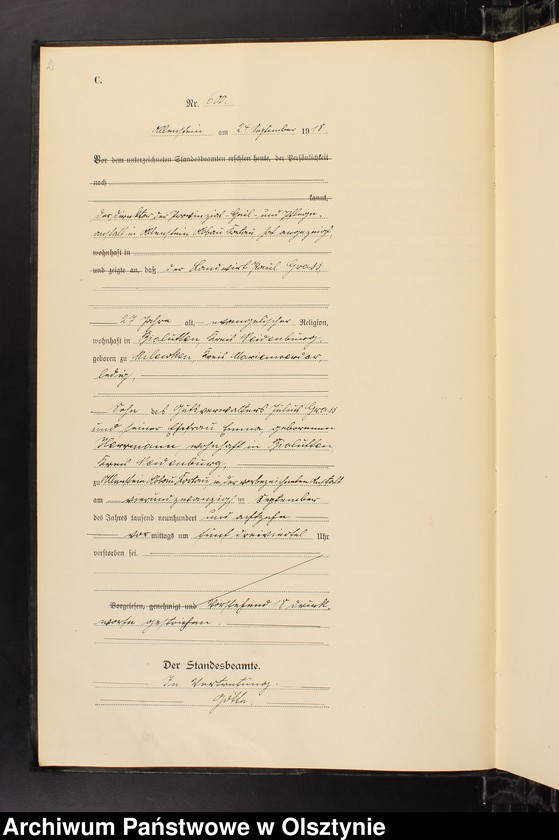 C.
Nr. 600.
Allenstein am 24. September 1918.
Vor dem unterzeichneten Standesbeamten erschien heute, der Persönlichkeit
nach
kannt,
der Direktor der Provinzial-Heil- und Pflege-
anstalt in Allenstein Abbau Kortau hat angezeigt,
wohnhaft in
und zeigte an, daß der Landwirt Paul Grass
27 Jahre alt, evangelischer Religion,
wohnhaft in Kreis Neidenburg,
geboren zu Kreis Marienwerder,
ledig,
Sohn des Gutsverwalters Julius Grass
und seiner Ehefrau Emma geborenen
Herrmann wohnhaft in
Kreis Neidenburg,
zu Allenstein Abbau Kortau, in der vorbezeichneten Anstalt
am vierundzwanzigsten September
des Jahres tausend neunhundert und achtzehn
vor mittags um fünf dreiviertel Uhr
verstorben sei.
Vorgelesen, genehmigt und Vorstehend Druck-
worte gestrichen.
Der Standesbeamte.
In Vertretung.
Archiwum Państwowe w Olsztynie